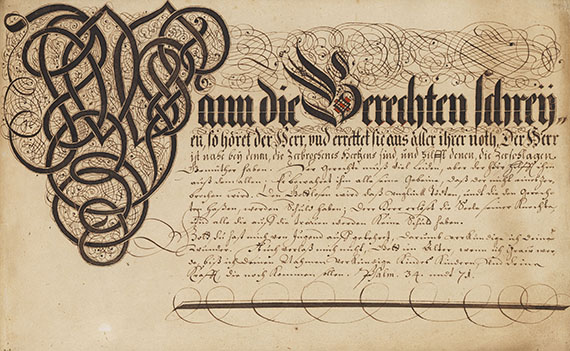 Wann die Gerechten schrey„
en, so höret der Herr, vnd errettet sie aus aller ihrer noth. Der Herr
ist nahe bey denen, die Zerbrochenes Hertzens sind, und hilfft denen, die Zerschlagen
Gemüther haben. Der Gerechte muß viel leiden, aber der Herr hilfft ihm
auß dem allen. Er bewahret ihm alle seine Gebeine, daß der nicht eines
brochen wird. Den Gottlosen wird daß Unglück tödten, und die den Gerech-
ten haßen werden Schuld haben. Der Herr erlößt die Seele seiner Knechte,
und alle die auf ihn trauen werden keine Schuld haben.
Gott du hast mich von Jugend auf gelehret, verkündige ich Deine
Wunder. Auch verlaß mich nicht, Gott im Alter, ich graw wer-
de, biß ich deinen verkündige Kindes Kindern, und deine
Krafft die noch kommen sollen. Psalm. 34. 71.